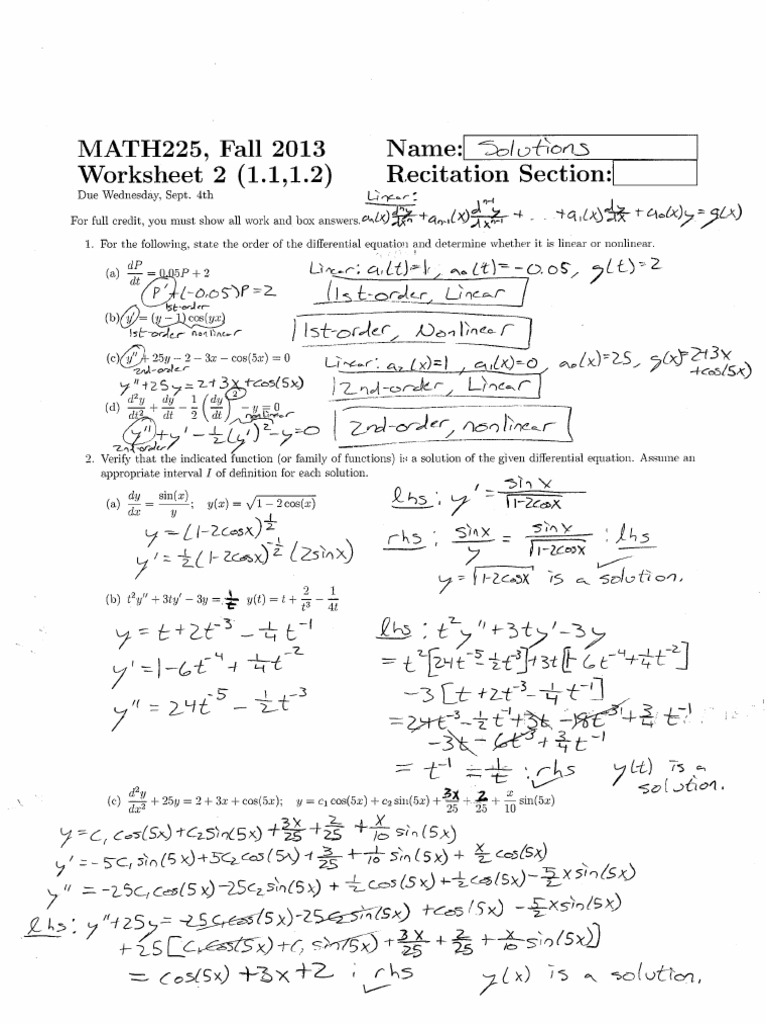 MATH225, Fall 2013 Name: Solutions
Worksheet 2 (1.1,1.2) Recitation Section:
Due Wednesday, Sept. 4th Linear:
For full credit, you must show all work and box answers. aₙ(x) dⁿy/dxⁿ + aₙ₋₁(x) dⁿ⁻¹y/dxⁿ⁻¹ + ... + a₁(x) dy/dx + a₀(x)y = g(x)
1. For the following, state the order of the differential equation and determine whether it is linear or nonlinear.
(a) dP/dt = 0.05P + 2 Linear: a₁(t)=1, a₀(t)=-0.05, g(t)=2
P' + (-0.05)P = 2 1st-order, Linear
1st-order
(b) y' = (y − 1) cos(yx) 1st-order, Nonlinear
1st-order nonlinear
(c) y'' + 25y − 2 − 3x − cos(5x) = 0 Linear: a₂(x)=1, a₁(x)=0, a₀(x)=25, g(x)=2+3x+cos(5x)
2nd-order
y''+25y = 2+3x+cos(5x) 2nd-order, Linear
(d) d²y/dt² + dy/dt − 1/2 (dy/dt)² − y = 0
nonlinear
y''+y' - ½(y')² - y = 0 2nd-order, nonlinear
2nd-order
2. Verify that the indicated function (or family of functions) is a solution of the given differential equation. Assume an
appropriate interval I of definition for each solution.
(a) dy/dx = sin(x)/y; y(x) = √(1 − 2 cos(x)) lhs: y' = sin x/√(1-2cosx)
y = (1-2cosx)^(1/2) rhs: sinx/y = sin x/√(1-2cosx) : lhs ✓
y' = ½(1-2cosx)^(-1/2) (2sinx)
y = √(1-2cosx) is a solution.
(b) t²y'' + 3ty' − 3y = 1/t y(t) = t + 2/t³ − 1/4t
y = t + 2t⁻³ - ¼t⁻¹ lhs: t²y''+3ty'-3y
y' = 1-6t⁻⁴ + ¼t⁻² = t²[24t⁻⁵-½t⁻³]+3t[1-6t⁻⁴+¼t⁻²]
y'' = 24t⁻⁵ - ½t⁻³ -3[t+2t⁻³-¼t⁻¹]
= 24t⁻³-½t⁻¹+3t-18t⁻³+¾t⁻¹
-3t-6t⁻³+¾t⁻¹
= t⁻¹ = 1/t : rhs ✓ y(t) is a
solution.
(c) d²y/dx² + 25y = 2 + 3x + cos(5x); y = c₁ cos(5x) + c₂ sin(5x) + 3x/25 + 2/25 + x/10 sin(5x)
y = c₁cos(5x)+c₂sin(5x)+3x/25+2/25+x/10 sin(5x)
y' = -5c₁sin(5x)+5c₂cos(5x)+3/25+1/10 sin(5x) + x/2 cos(5x)
y'' = -25c₁cos(5x)-25c₂sin(5x)+½cos(5x)+½cos(5x)-5/2 x sin(5x)
lhs: y''+25y = -25c₁cos(5x)-25c₂sin(5x)+cos(5x)-5/2 x sin(5x)
+25[c₁cos(5x)+c₁sin(5x)+3x/25+2/25+x/10 sin(5x)]
= cos(5x)+3x+2 : rhs ✓ y(x) is a solution.